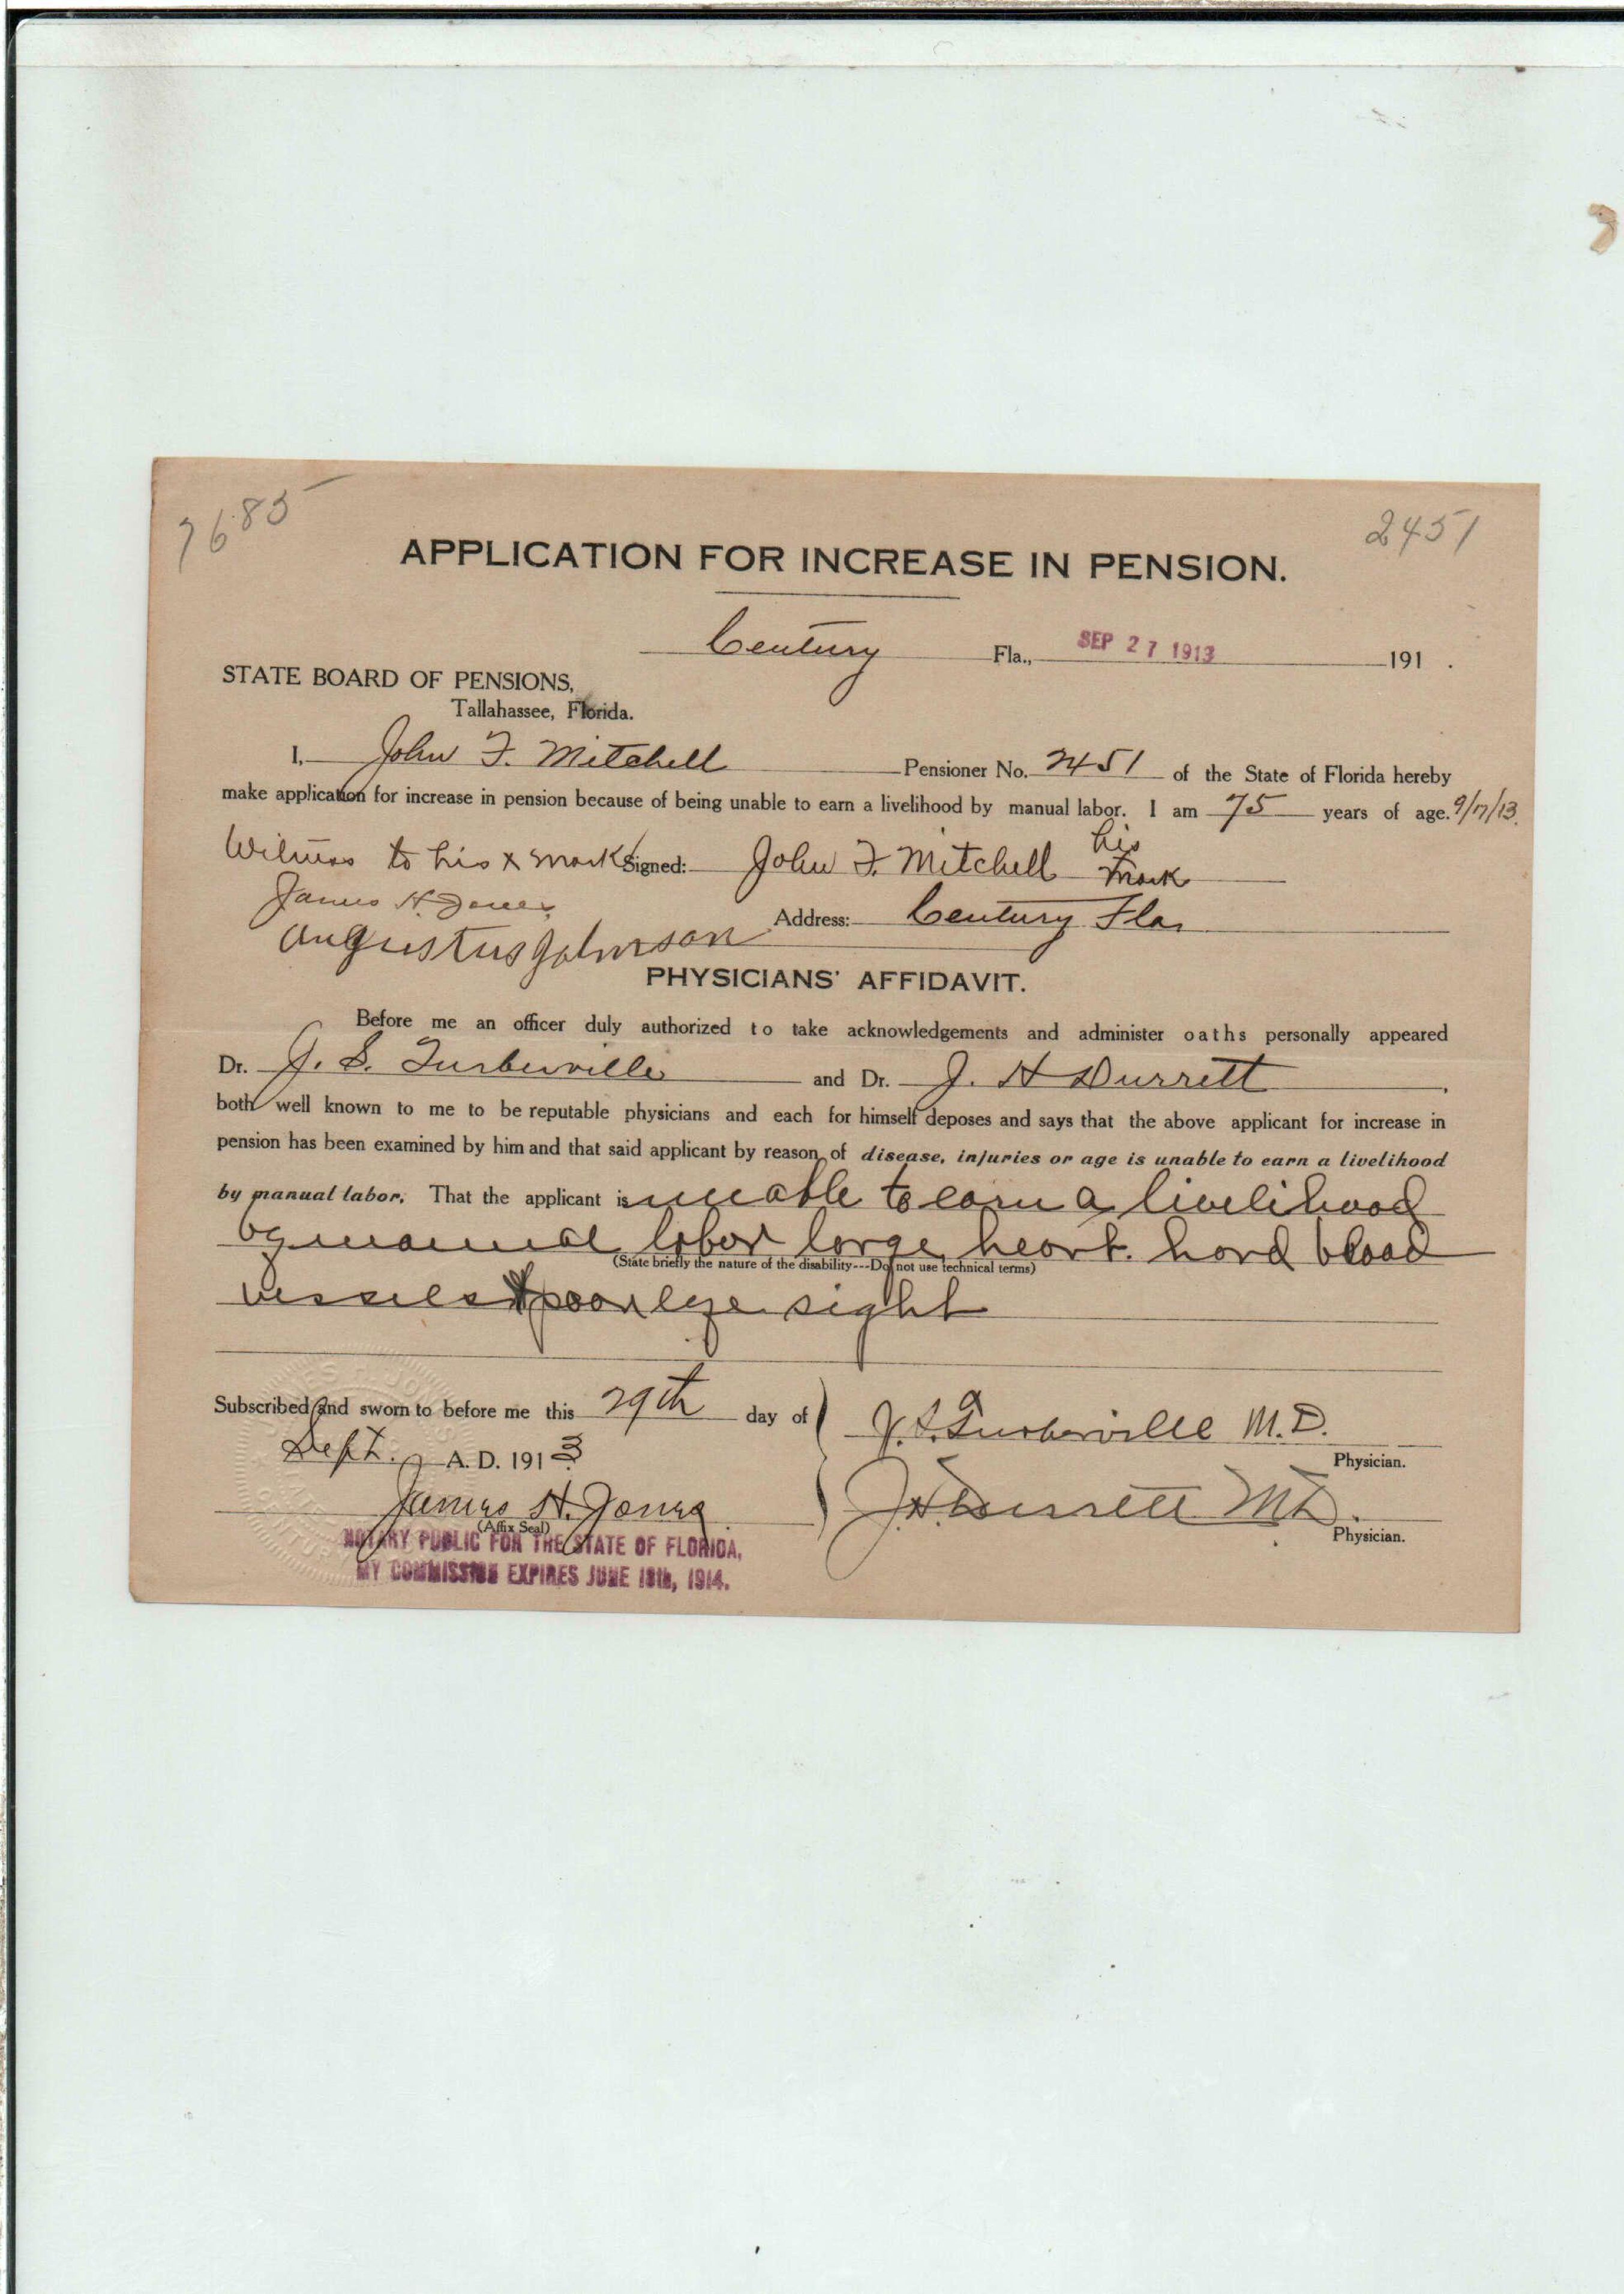 7685
2451
APPLICATION FOR INCREASE IN PENSION.
Century Fla., SEP 27 1913 191 .
STATE BOARD OF PENSIONS,
Tallahassee, Florida.
I, John F. Mitchell Pensioner No. 2451 of the State of Florida hereby
make application for increase in pension because of being unable to earn a livelihood by manual labor. I am 75 years of age. 9/17/13.
his
Witness to his x mark Signed: John F. Mitchell mark
James H. Jones
Address: Century Fla,
Augustus Johnson
PHYSICIANS' AFFIDAVIT.
Before me an officer duly authorized to take acknowledgements and administer oaths personally appeared
Dr. J. S. Turberville and Dr. J. H Durrett .
both well known to me to be reputable physicians and each for himself deposes and says that the above applicant for increase in
pension has been examined by him and that said applicant by reason of disease, injuries or age is unable to earn a livelihood
by manual labor. That the applicant is unable to earn a livelihood
by manual labor large heart. hard blood
(State briefly the nature of the disability---Do not use technical terms)
vessels & poor eye sight
Subscribed and sworn to before me this 29th day of
J. S. Turberville M.D.
Sept. A. D. 1913
Physician.
James H. Jones
J. H. Durrett MD.
(Affix Seal)
Physician.
NOTARY PUBLIC FOR THE STATE OF FLORIDA,
MY COMMISSION EXPIRES JUNE 18th, 1914.